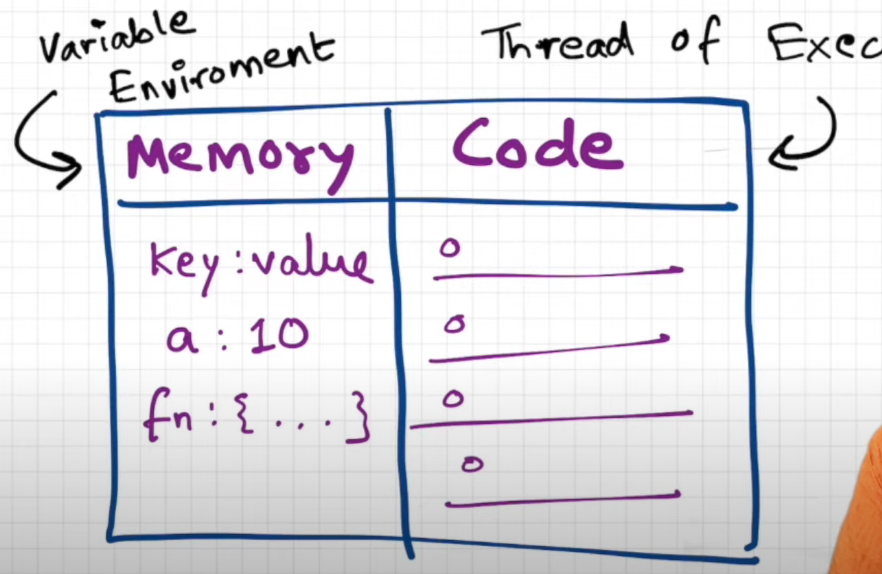 Variable
Enviroment
Thread of Exec
Memory
Code
Key : value
a : 10
fn : { ... }